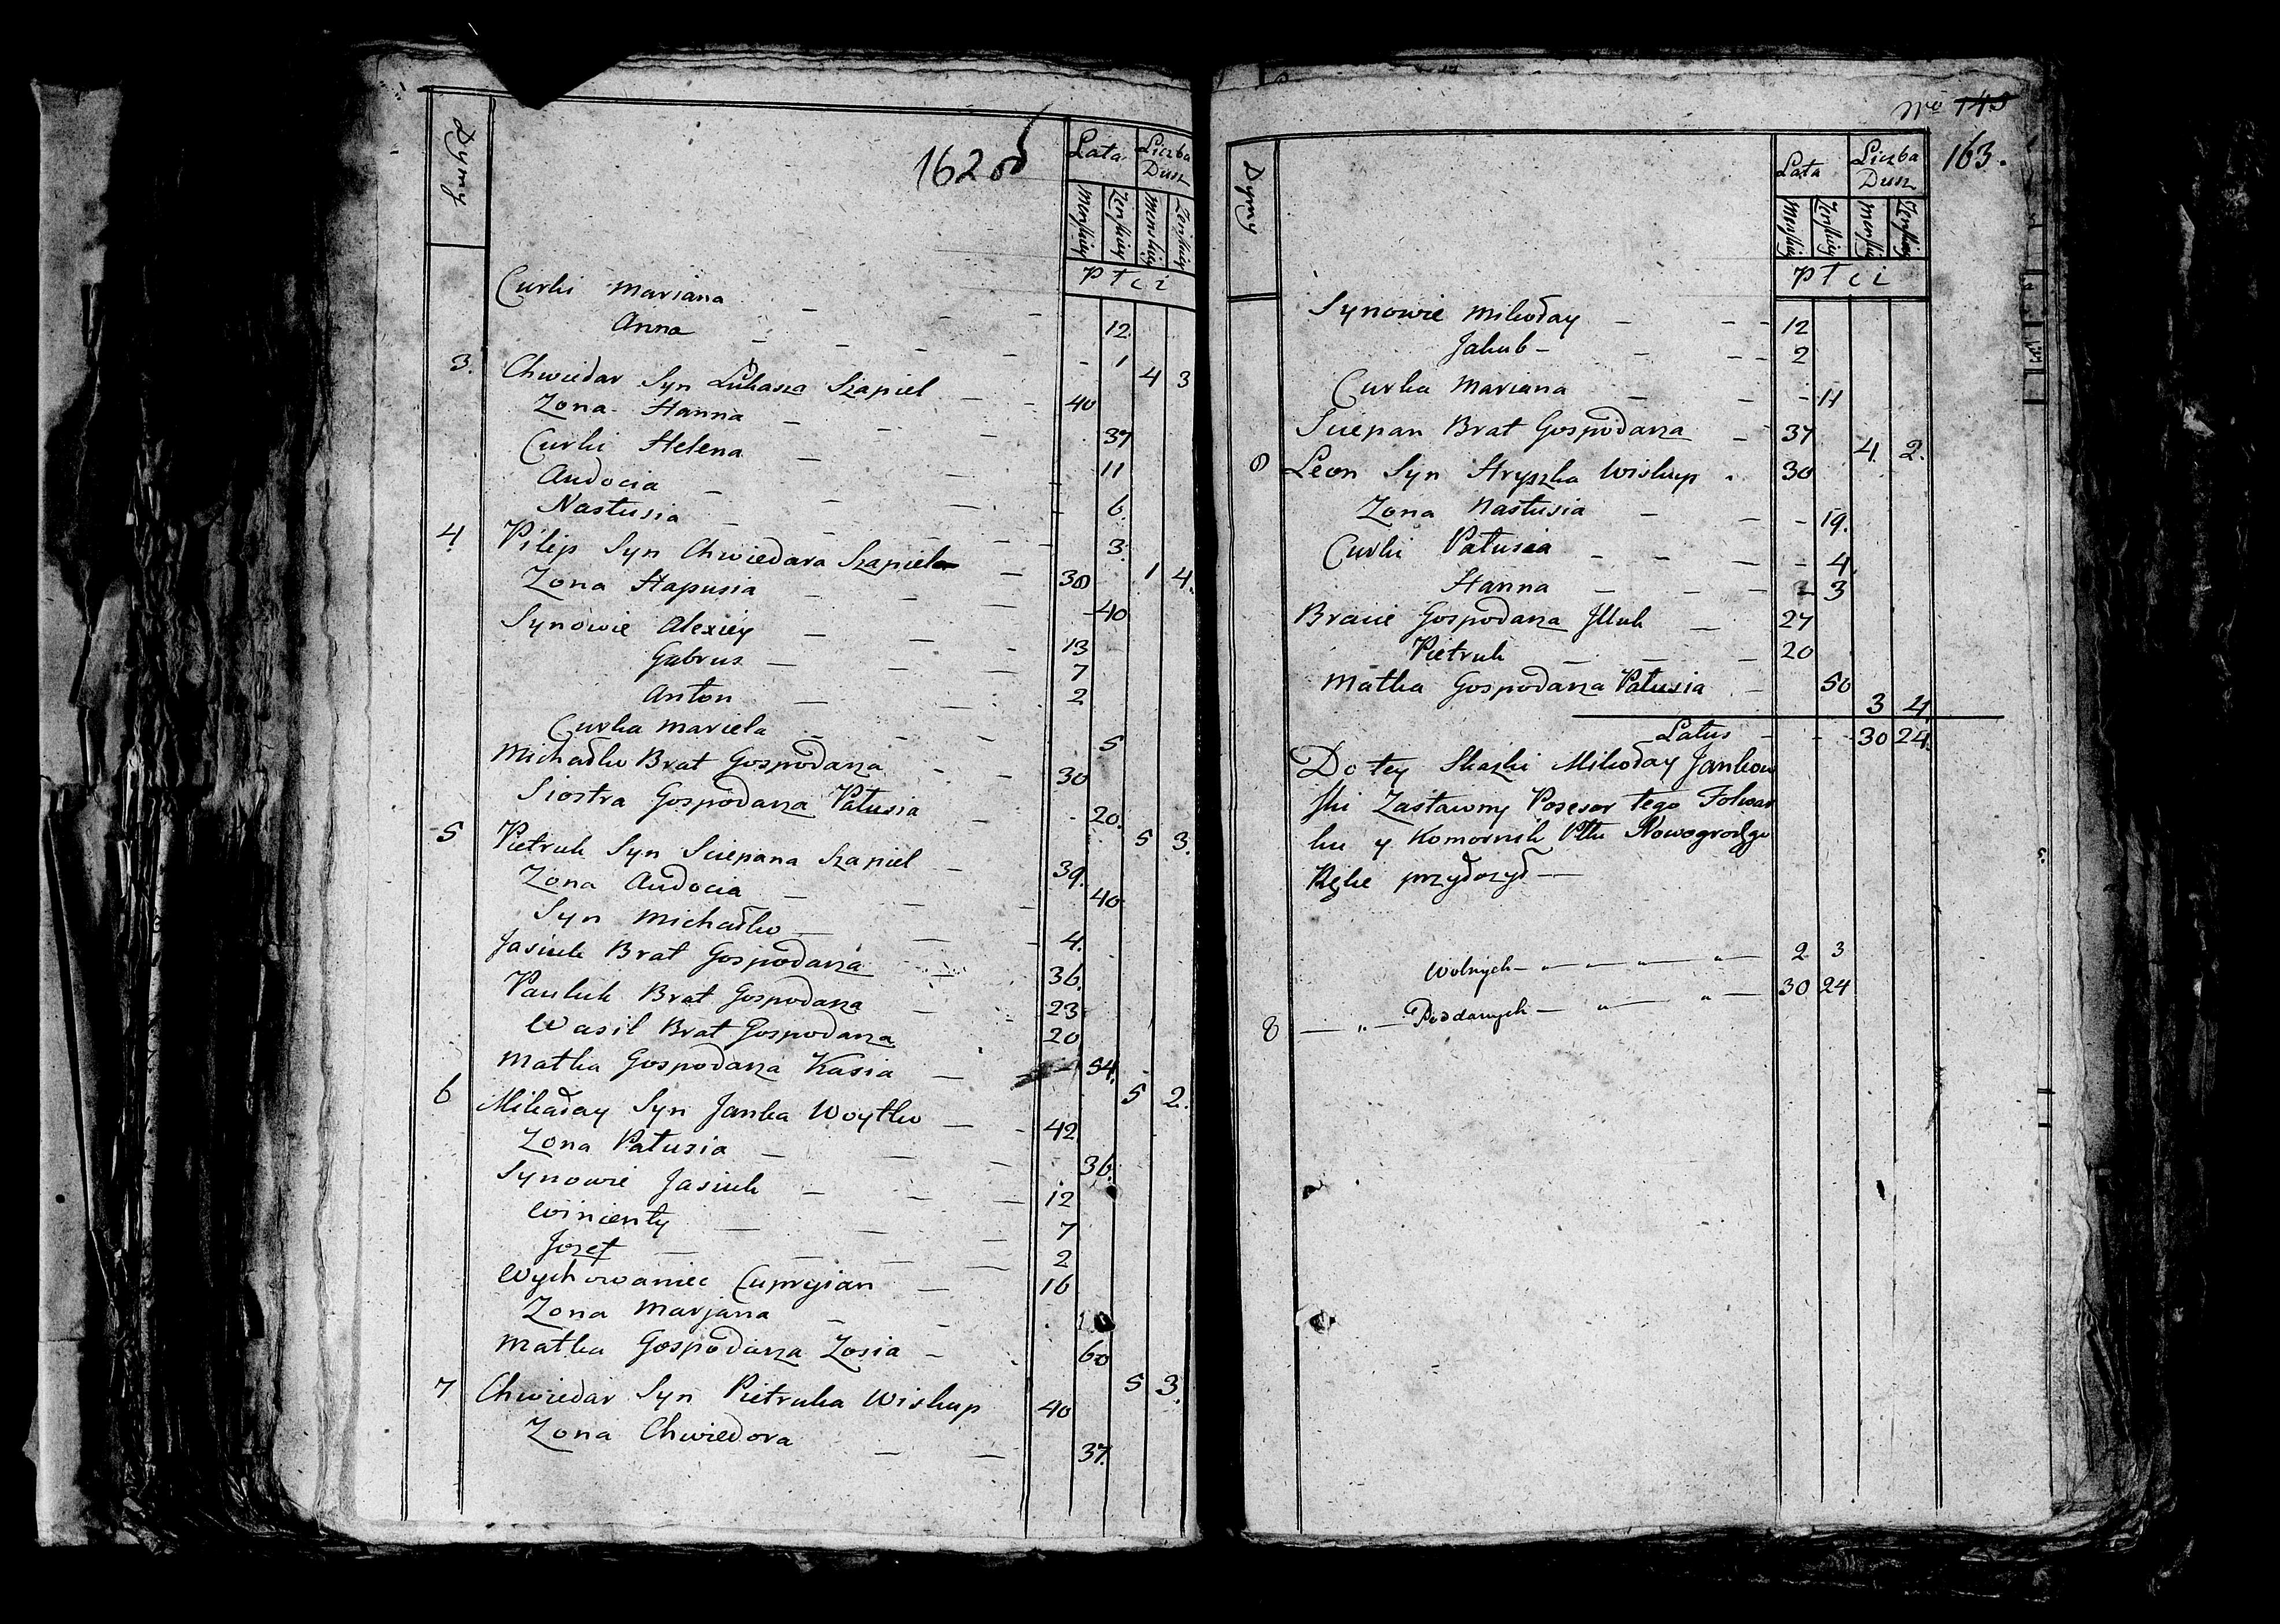 162 об
Dymy
Lata Liczba Dusz
Męskiey Żeńskiey Męskiey Żeńskiey
Płci
Curki Mariana — — — 12
Anna — — — 1
4 3
3. Chwiedar Syn Łukasza Szapiel — 40
Zona Hanna — — — 37
Curki Helena — — 11
Audocia — — — 6
Nastusia — — — 3
1 4.
4 Pilip Syn Chwiedara Szapiela — 30
Zona Hapusia — — — 40
Synowie Alexiey — — — 13
Gabrus — — — 7
Anton — — — 2
Curka Marcela — — — 5
Michałko Brat Gospodarza — — 30
Siostra Gospodarza Patusia — 20.
5 3.
5 Pietruk Syn Sciepana Szapiel — 39.
Zona Audocia — — — 40
Syn Michałko — — — 4.
Jasiuk Brat Gospodarza — 36.
Pauluk Brat Gospodarza — 23
Wasil Brat Gospodarza — 20
Matka Gospodarza Kasia — 54.
5 2.
6 Mikołay Syn Janka Woytko — 42
Zona Patusia — — — 36.
Synowie Jasiuk — — — 12
Wincenty — — — 7
Jozef — — — 2
Wychowaniec Cupryian — 16
Zona Marjana — —
Matka Gospodarza Zosia — 60
5 3.
7 Chwiedar Syn Pietruka Wiskup 40
Zona Chwiedora — — 37.
No 145
163.
Dymy
Lata Liczba Dusz
Męskiey Żeńskiey Męskiey Żeńskiey
Płci
Synowie Mikołay — — — 12
Jakub — — — 2
Curka Mariana — — — 11
Sciepan Brat Gospodarza — 37
4. 2.
8 Leon Syn Hryszka Wiskup 30
Zona Nastusia — — — 19.
Curki Patusia — — — 4.
Hanna — — — 3
Bracie Gospodarza Illuk — 27
Pietruk — — — 20
Matka Gospodarza Patusia — 50
3 4
Latus — — — 30 24.
Do tey Skazki Mikołay Jankow
ski Zastawny Posesor tego Folwar
ku y Komornik Pttu Nowogrodzgo
Rękę przyłożył —
Wolnych — — — — 2 3
8 — " — Poddanych — " — " — 30 24